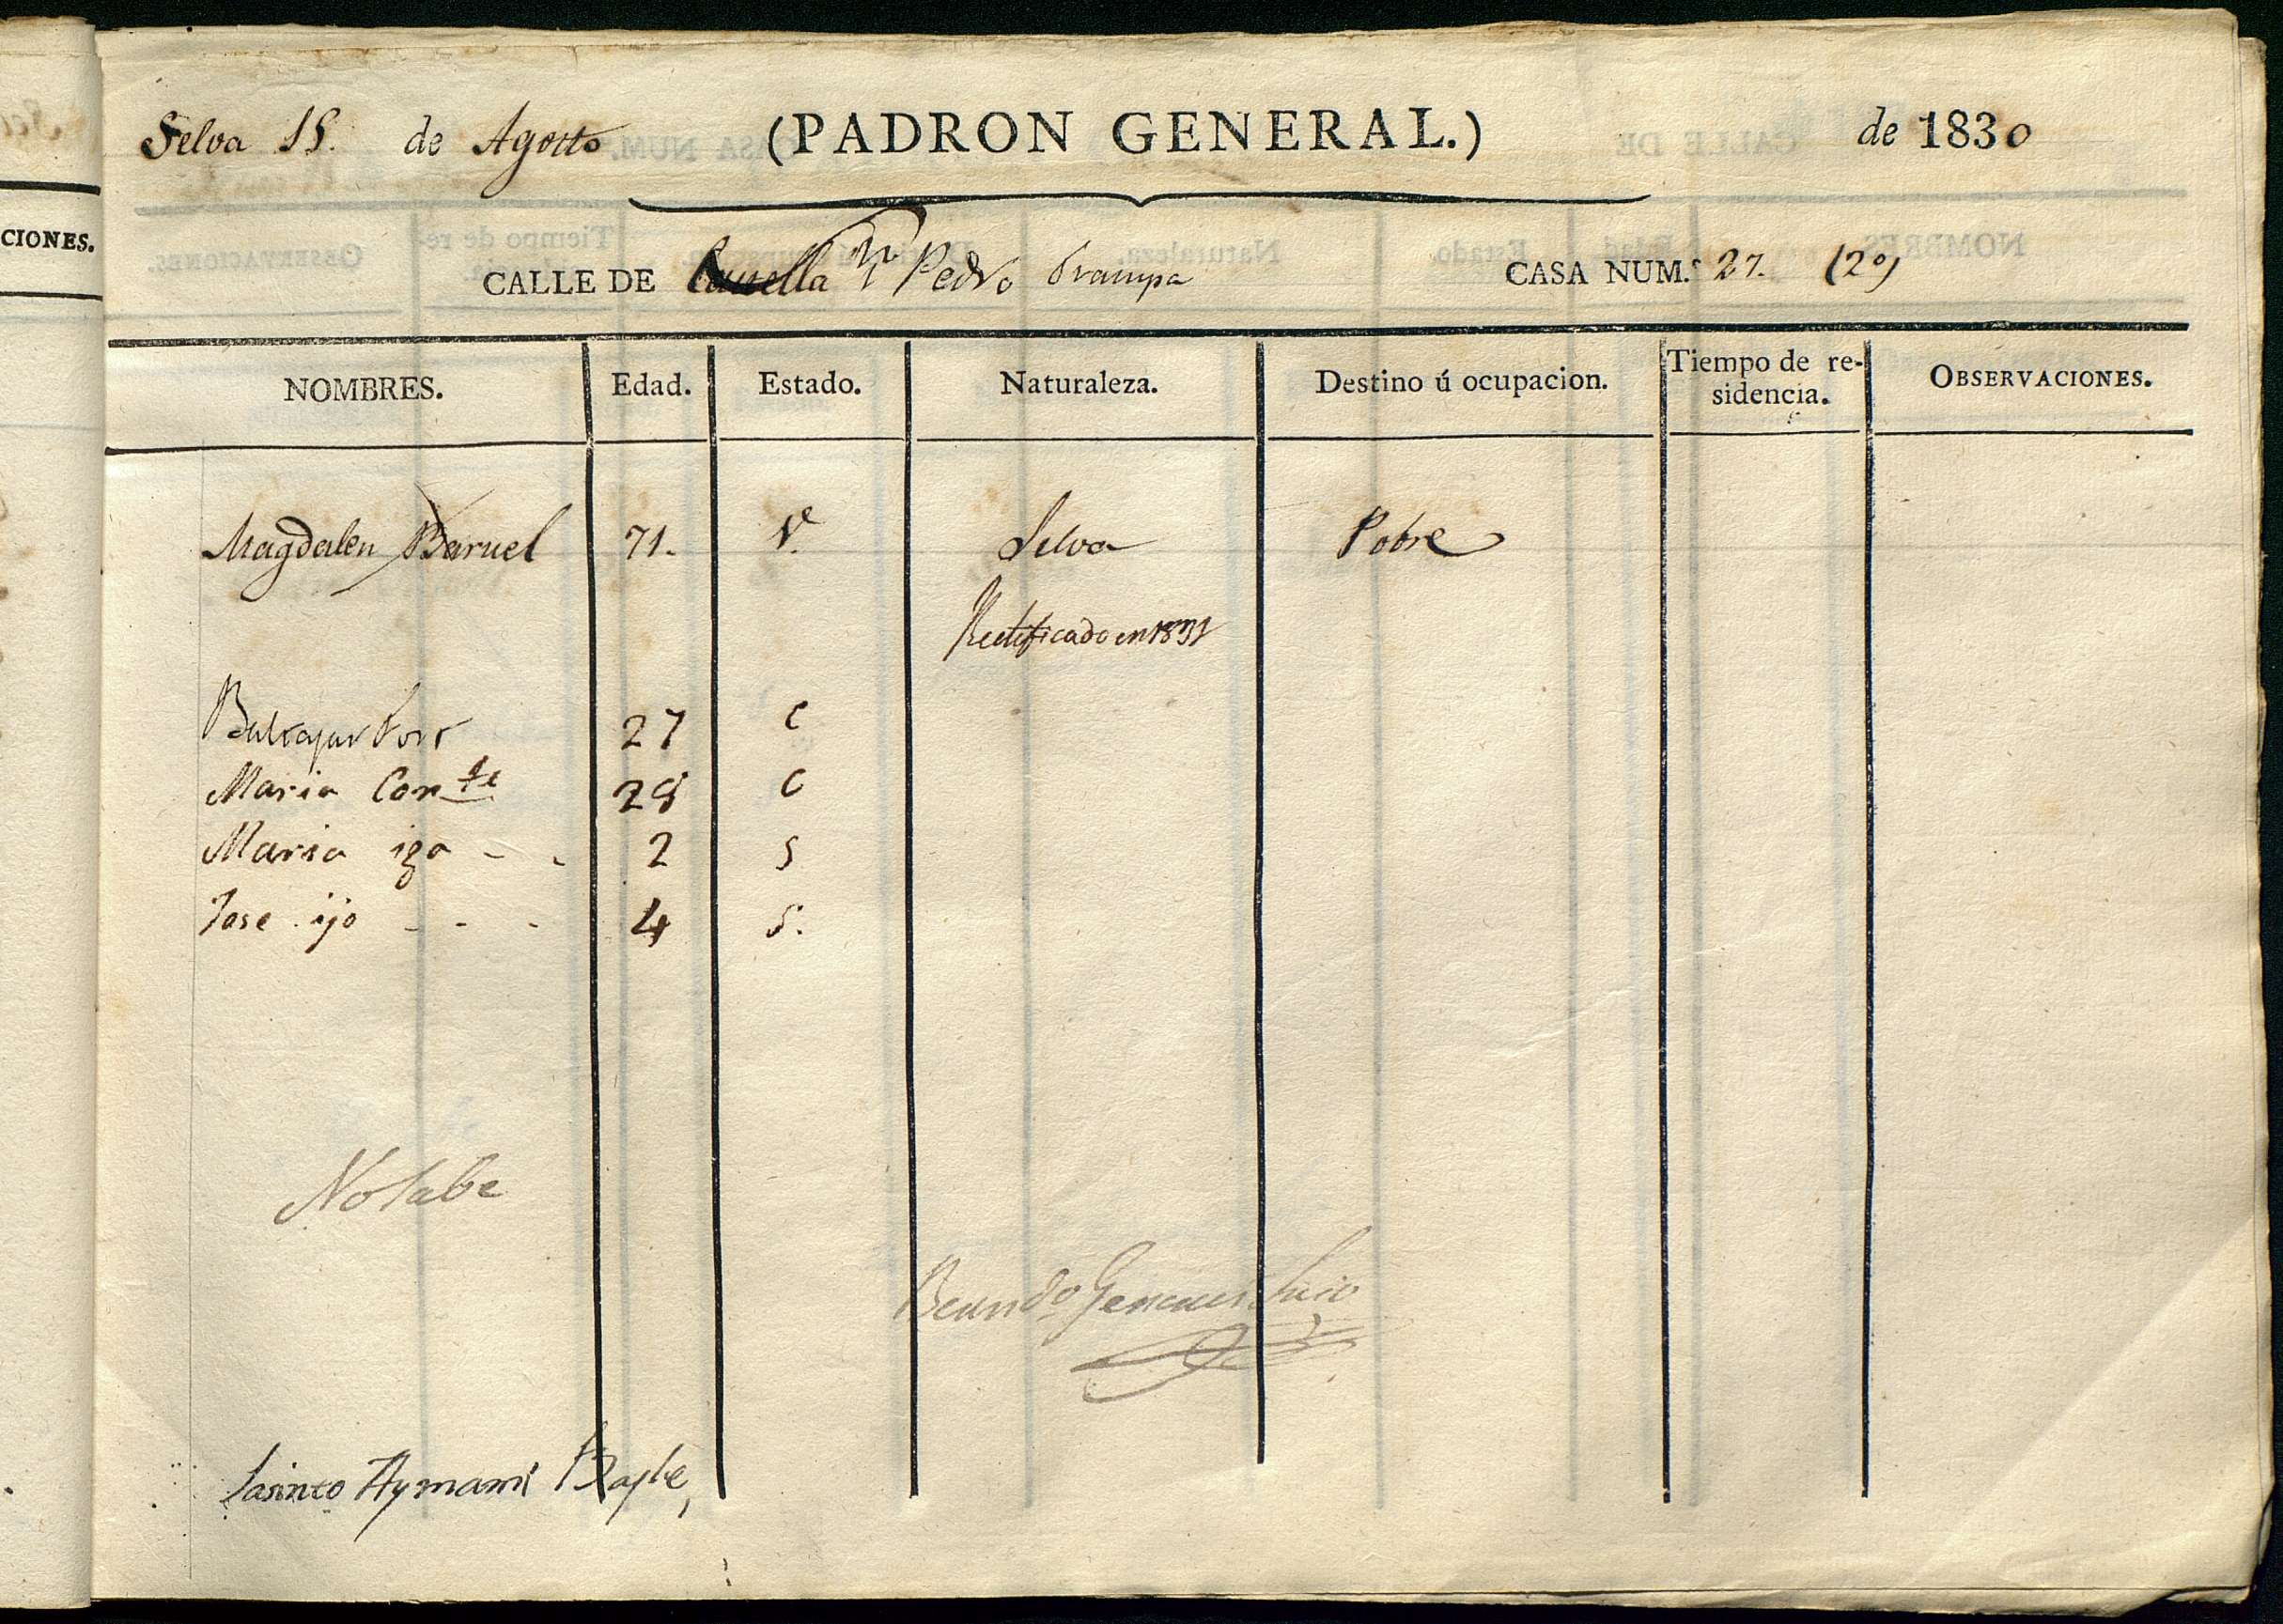 Selva 15. de Agosto (PADRON GENERAL.) de 1830
CALLE DE Pedro CASA NUM.º 27. (2º)
NOMBRES. Edad. Estado. Naturaleza. Destino ú ocupacion. Tiempo de re-sidencia. OBSERVACIONES.
CIONES.
Magdalen Baruel 71. Vᵉ Selva Pobre
Rectificado en 1831
Baltasar 27 C
Maria Conte 28 C
Maria iga - - 2 S
Jose ijo - - - 4 S.
No sabe
Jasinto Aymami Bayle,